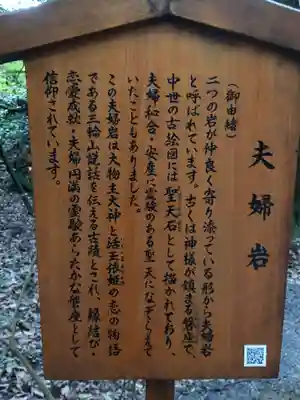 夫婦岩
(御由緒)
二つの岩が仲良く寄り添っている形から夫婦岩
と呼ばれています。古くは神様が鎮まる磐座で、
中世の古絵図には聖天石として描かれており、
夫婦和合・安産に霊験のある聖天になぞらえて
いたこともありました。
この夫婦岩は大物主大神と活玉依姫の恋の物語
である三輪山説話を伝える古蹟とされ、縁結び・
恋愛成就・夫婦円満の霊験あらたかな磐座として
信仰されています。